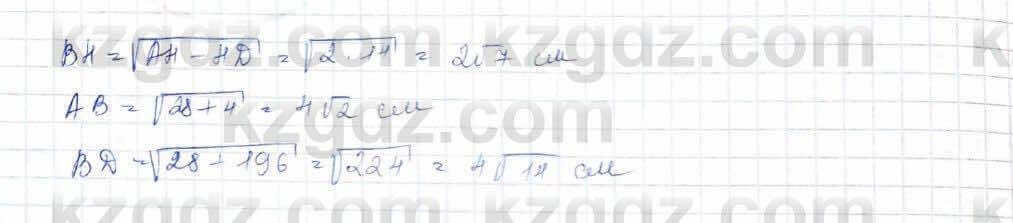 kzgdz.com kzgdz.com k
BH = √AH - HD = √2·14 = 2√7 см
AB = √28+4 = 4√2 см
kzgdz.com
BD = √28+196 = √224 = 4√14 см
kzgdz.com kzgdz.com k